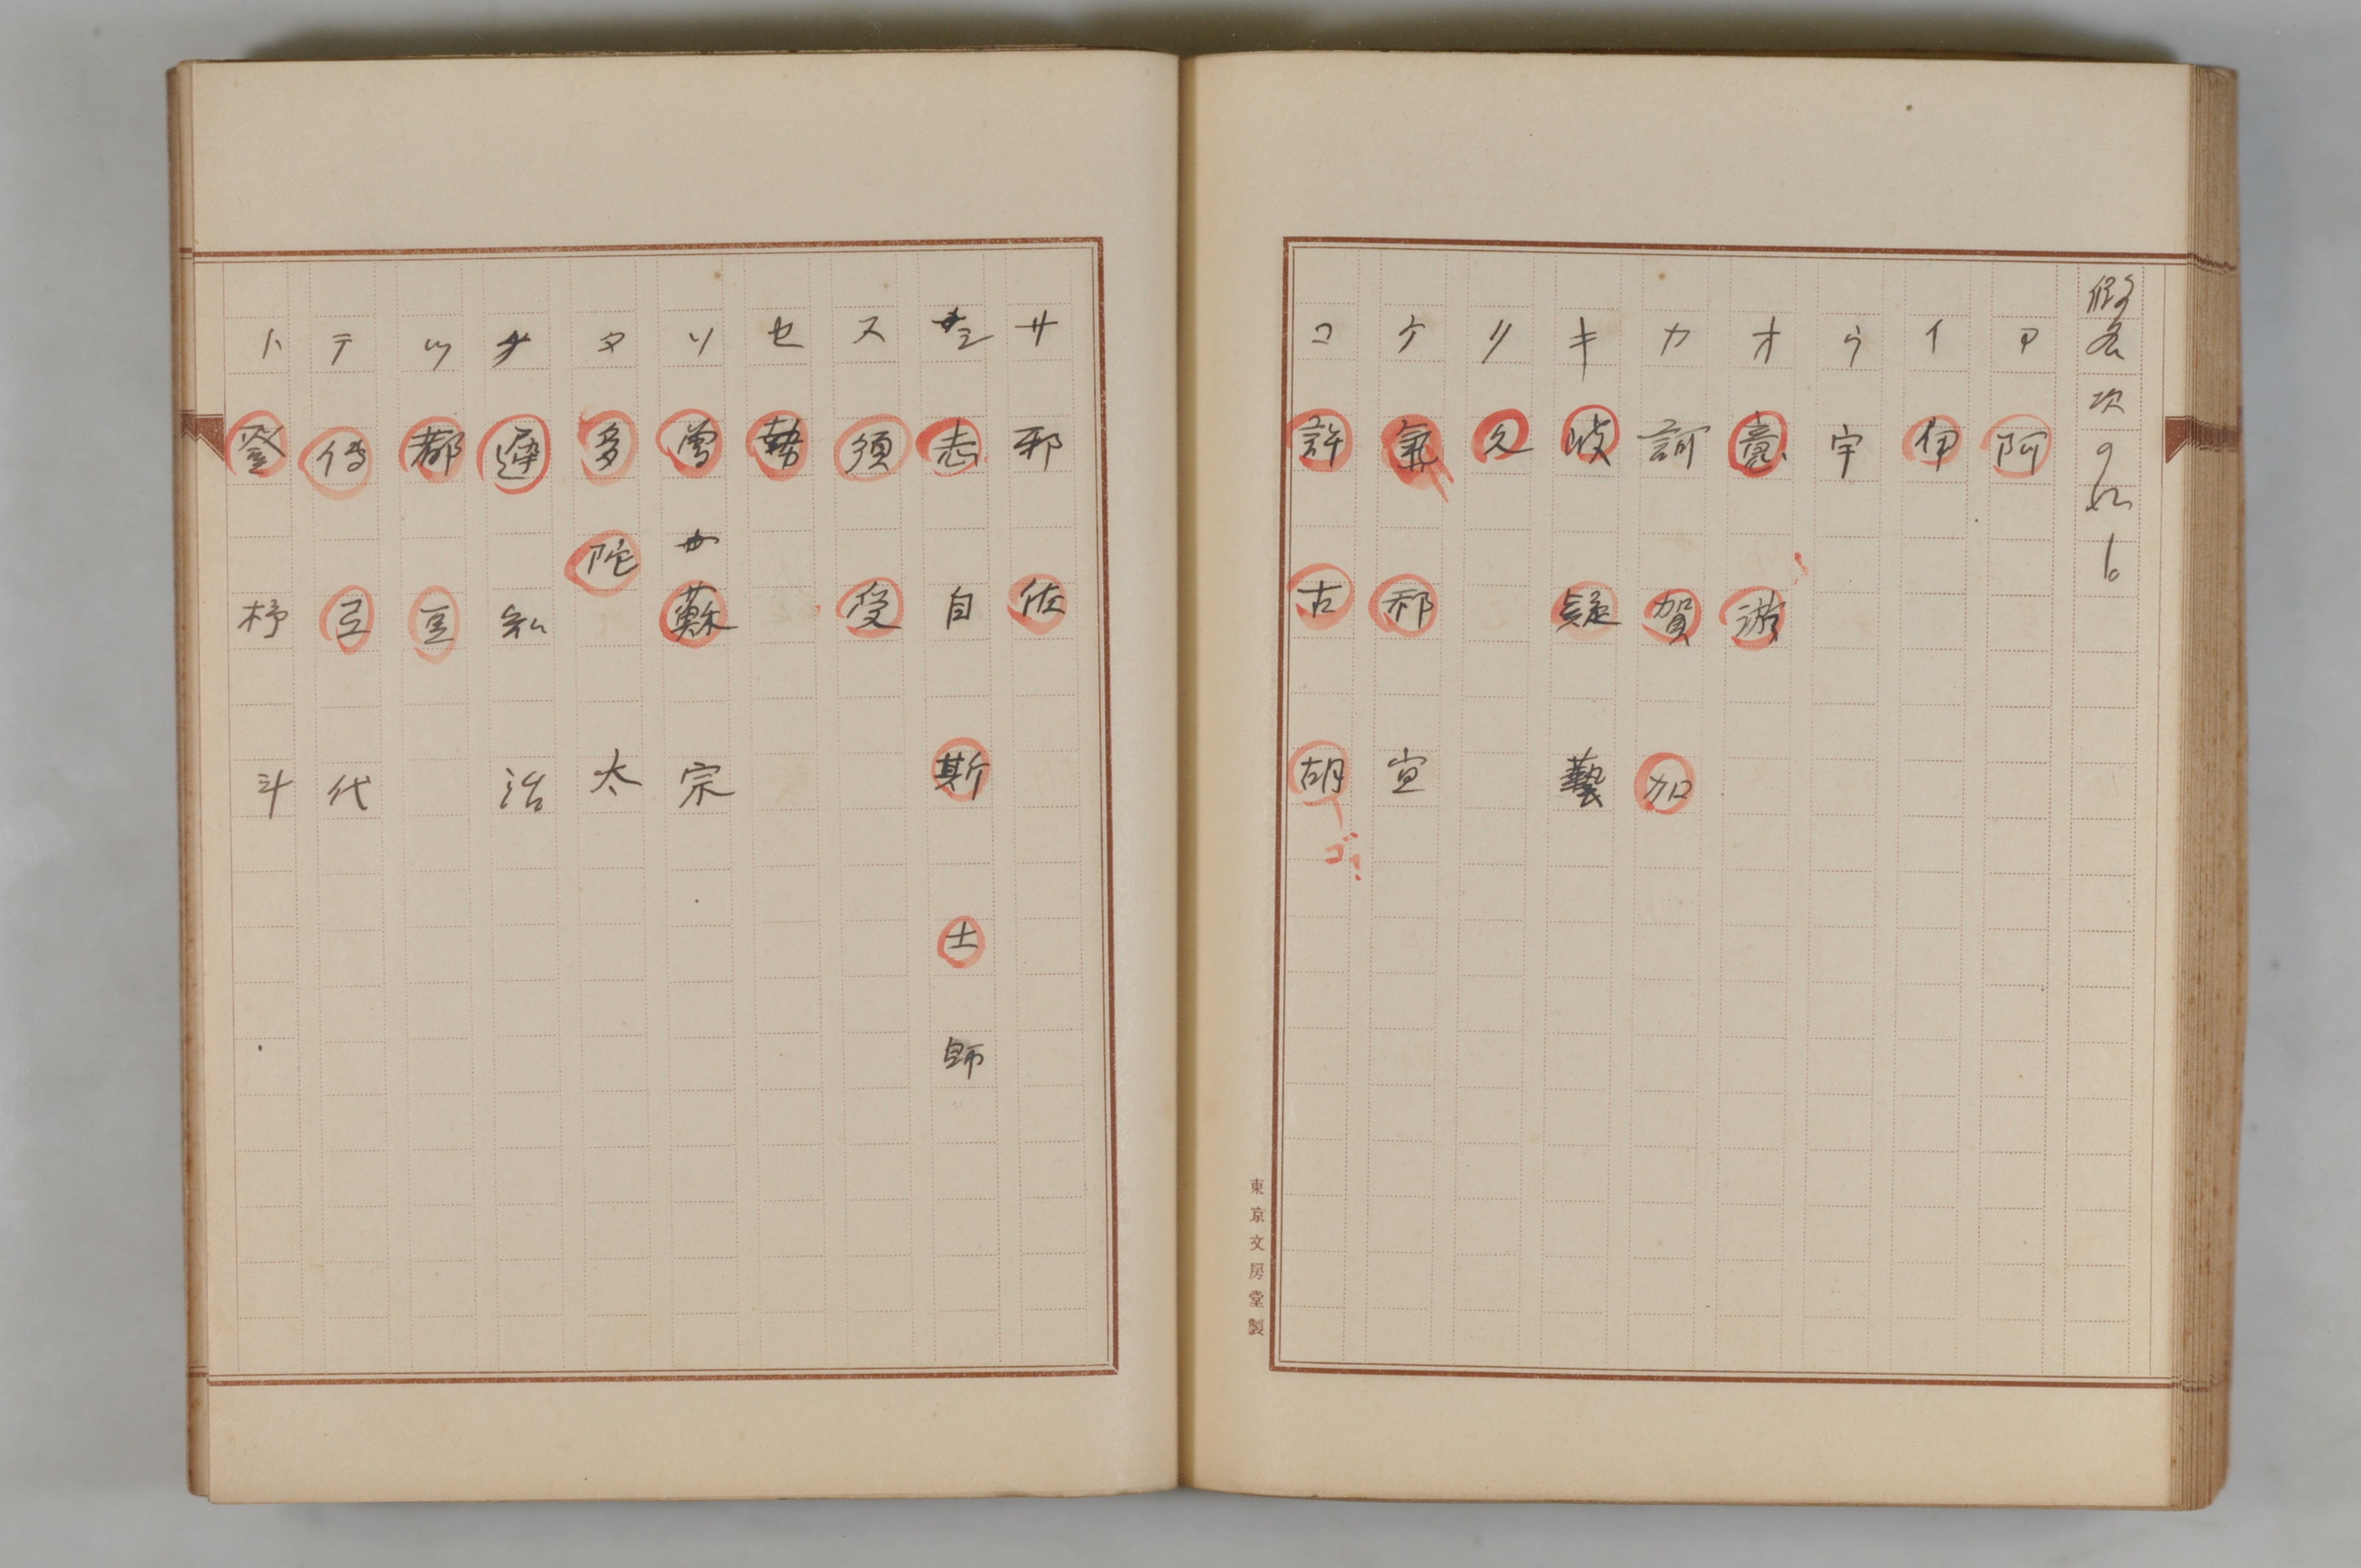 假名 次の如し
ア 阿
イ 伊
ウ 宇
オ 意 游
カ 訶 賀 加
キ 岐 疑 藝
ク 久
ケ 氣 祁 宜
コ 許 古 胡 ゴ?
東京文房堂製
サ 邪 佐
シ 志 自 斯 士 師
ス 須 受
セ 勢
ソ 曽 蘇 宗
タ 多 陀 太
チ 遅 知 治
ツ 都 豆
テ 傳 弖 代
ト 登 杼 斗